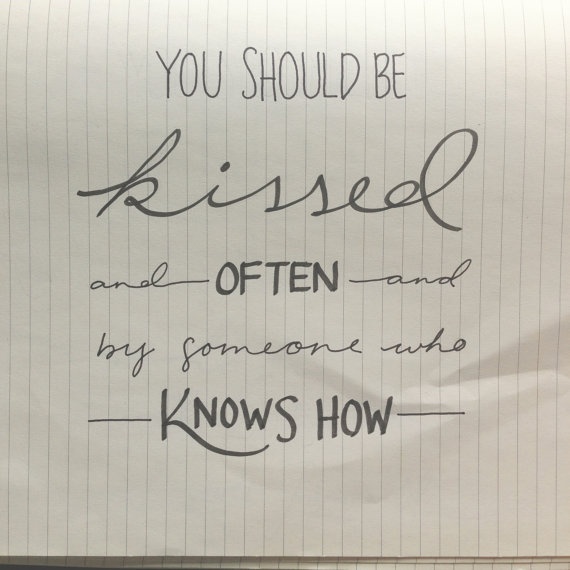 YOU SHOULD BE
kissed
and OFTEN and
by someone who
KNOWS HOW